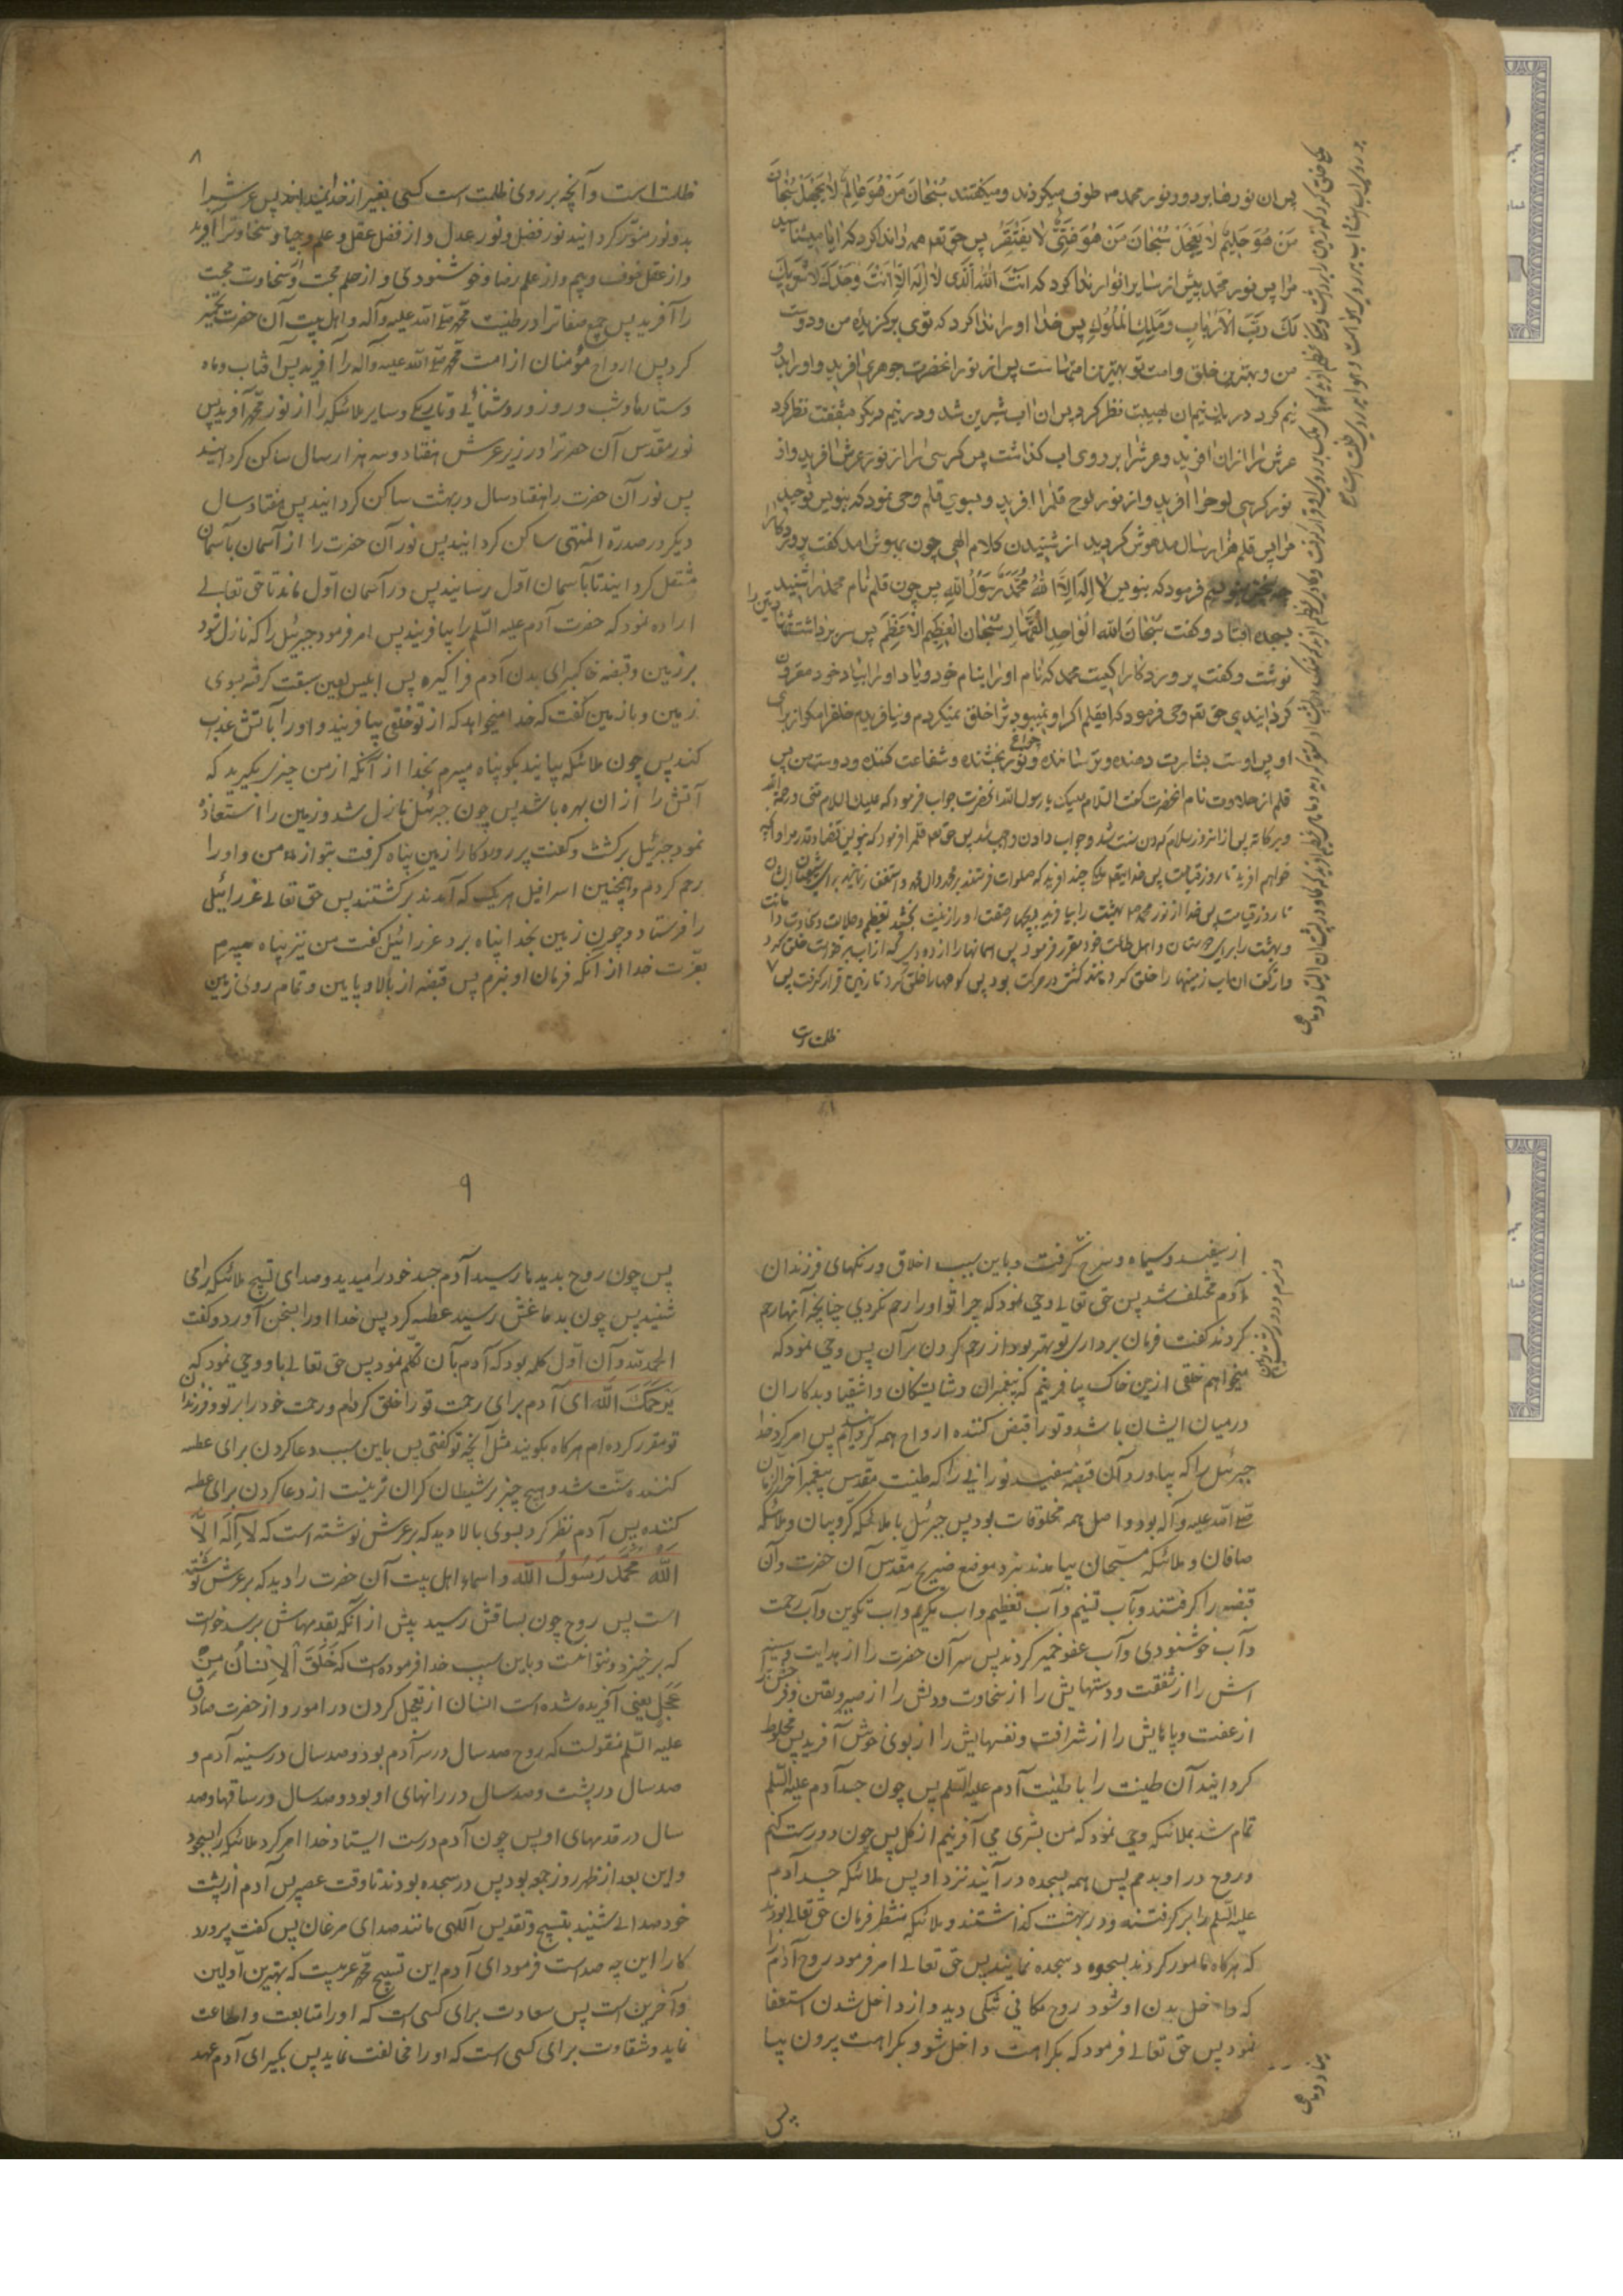 پس ان نور ضا بر دوو نور محمد ص طوف میکردند و میکفتند سُبْحٰانَ مَنْ هُوَ عٰالِمٌ لاٰ یَجْهَلُ سُبْحٰانَ
مَنْ هُوَ حَلِیمٌ لاٰ یَعْجَلُ سُبْحٰانَ مَنْ هُوَ غَنِیٌّ لاٰ یَفْتَقِرُ پس حق تعه همه را ندا کرد که ایا میشناسید
مرا پس نور محمد پیش از سایر انوار ندا کرد که اَنْتَ اللهُ الَّذی لاٰ اِلٰهَ اِلاّٰ اَنْتَ وَحْدَکَ لاٰ شَرِیکَ
لَکَ رَبُّ الْاَرْبٰابِ وَ مَلِکُ الْمُلُوکِ پس خدا او را ندا کرد که توی برکزیده من و دوست
من و بهترین خلق و امت تو بهترین امتهاست پس از نور انحضرت جوهری افرید و او را بدو
نیم کرد در یک نیم ان بهیبت نظر کرد پس ان اب شیرین شد و در نیم دیکر بشفقت نظر کرد
عرش را از ان افرید و عرش را بر روی اب کذاشت پس کرسی را از نور عرش افرید و از
نور کرسی لوح را افرید و از نور لوح قلم را افرید و بسوی قلم وحی نمود که بنویس توحید
مرا پس قلم هزار سال مدهوش کردید از شنیدن کلام الهی چون بهوش امد کفت پروردکارا
چه چیز بنویسم فرمود که بنویس لاٰ اِلٰهَ اِلاَّ اللهُ مُحَمَّدٌ رَسُولُ اللهِ پس چون قلم نام محمد را شنید
بسجده افتاد و کفت سُبْحٰانَ اللهِ الْوٰاحِدِ الْقَهّٰارِ سُبْحٰانَ الْعَظِیمِ الْاَعْظَمِ پس سر برداشت و شهادتین را
نوشت و کفت پروردکارا کیست محمد که نام او را بنام خود و یاد او را بیاد خود مقرون
کردانیدی حق تعه وحی فرمود که ایقلم اکر او نمیبود ترا خلق نمیکردم و نیافریدم خلقرا مکر از برای
او پس اوست بشارت دهنده و ترساننده و چراغ نور بخشنده و شفاعت کننده و دوست من پس
قلم از حلاوت نام انحضرت کفت السلام علیک یا رسول الله انحضرت جواب فرمود که علیک السلام منی و رحمة الله
و برکاته پس از انروز سلام کردن سنت شد و جواب دادن واجب شد پس حق تعه قلم را فرمود که بنویس قضا و قدر مرا و انچه
خواهم افرید تا روز قیامت پس خدا یتعه ملکی چند افرید که صلوات فرستند بر محمد وال محمد و استغفار نمایند برای شیعیان ایشان
تا روز قیامت پس خدا از نور محمد ص بهشت را بیافرید و بچهار صفت او را زینت بخشید تعظیم و جلالت و سخاوت و امانت
و بهشت را برای دوستان و اهل طاعت خود مقرر فرمود پس اسمانها را از دودی که از اب برخواست خلق کرد
و از کف ان اب زمینها را خلق کرد مانند کشتی در حرکت بود پس کوهها را خلق کرد تا زمین قرار کرفت پس
ظلمت است
۸
ظلمت است و آنچه بر روی ظلمت است کسی بغیر از خدا نمیداند پس عرش را
بدو نور منوّر کردانید نور فضل و نور عدل و از فضل عقل و علم و حیا و سخاوت را آفرید
و از عقل خوف و بیم و از علم رضا و خوشنودی و از حلم محبت و از سخاوت محبت
را آفرید پس جمیع صفات را در طینت محمّد صلّی الله علیه و آله و اهل بیت آن حضرت تخمیر
کرد پس ارواح مؤمنان از امت محمّد صلّی الله علیه و آله را آفرید پس آفتاب و ماه
و ستارها و شب و روز و روشنائی و تاریکی و سایر ملائکه را از نور محمّد آفرید پس
نور مقدّس آن حضرت را در زیر عرش هفتاد و سه هزار سال ساکن کردانید
پس نور آن حضرت را هفتاد سال در بهشت ساکن کردانید پس هفتاد سال
دیکر در صدرة المنتهی ساکن کردانید پس نور آن حضرت را از آسمان بآسمان
منتقل کردانید تا بآسمان اوّل رسانید پس در آسمان اوّل ماند تا حق تعالی
اراده نمود که حضرت آدم علیه السّلم را بیافریند پس امر فرمود جبرئیل را که نازل شود
بر زمین و قبضه خاک برای بدن آدم فرا کیرد پس ابلیس لعین سبقت کرفت بسوی
زمین و با زمین کفت که خدا میخواهد که از تو خلقی بیافریند و او را بآتش عذاب
کند پس چون ملائکه بیایند بکو پناه میبرم بخدا از آنکه از من چیزی بکیرید که
آتش را از ان بهره باشد پس چون جبرئیل نازل شد و زمین را استعاذه
نمود جبرئیل برکشت و کفت پروردکارا زمین پناه کرفت بتو از من و او را
رحم کردم و همچنین اسرافیل هریک که آمدند برکشتند پس حق تعالی عزرائیل
را فرستاد و چون زمین بخدا پناه برد عزرائیل کفت من نیز پناه میبرم
بعزّت خدا از آنکه فرمان او نبرم پس قبضه از بالا و پایین و تمام روی زمین
از سفید و سیاه و سرخ کرفت و باین سبب اخلاق و رنکهای فرزندان
آدم مختلف شد پس حق تعالی وحی نمود که چرا تو او را رحم نکردی چنانچه آنها رحم
کردند کفت فرمان برداری تو بهتر بود از رحم کردن بر آن پس وحی نمود که
میخواهم خلقی ازین خاک بیافرینم که پیغمبران و شایستکان و اشقیا و بدکاران
در میان ایشان باشد و تو را قبض کننده ارواح همه کردانیدم پس امر کرد خدا
جبرئیل را که بیاورد آن قبضه سفید نورانی را که طینت مقدّس پیغمبر آخر الزمان
صلّی الله علیه و آله بود و اصل همه مخلوقات بود پس جبرئیل با ملائکه کرّوبیان و ملائکه
صافان و ملائکه مسبّحان بیامدند نزد موضع ضریح مقدّس آن حضرت و آن
قبضه را کرفتند و بآب تسنیم و آب تعظیم و اب تکریم و آب تکوین و آب رحمت
و آب خوشنودی و آب عفو خمیر کردند پس سر آن حضرت را از هدایت و سینه
اش را از شفقت و دستهایش را از سخاوت و دلش را از صبر و یقین و فرجش را
از عفت و پاهایش را از شرافت و نفسهایش را از بوی خوش آفرید پس مخلوط
کردانید آن طینت را با طینت آدم علیه السّلم پس چون جسد آدم علیه السّلم
تمام شد بملائکه وحی نمود که من بشری می آفرینم از کل پس چون درست کنم
و روح در او بدمم پس همه بسجده در آئید نزد او پس ملائکه جسد آدم
علیه السّلم را بر کرفتند و در بهشت کذاشتند و ملائکه منتظر فرمان حق تعالی بودند
که هرکاه مامور کردند بسجود سجده نمایند پس حق تعالی امر فرمود روح آدم
که داخل بدن او شود روح مکانی تنکی دید و از داخل شدن استعفا
نمود پس حق تعالی فرمود که بکراهت داخل شو و بکراهت بیرون بیا
پس
۹
پس چون روح بدیدها رسید آدم جسد خود را میدید و صدای تسبیح ملائکه را می
شنید پس چون بدماغش رسید عطسه کرد پس خدا او را بسخن آورد و کفت
الحمد لله و آن اوّل کلمه بود که آدم بآن تکلّم نمود پس حق تعالی باو وحی نمود که
یَرْحَمُکَ اللّٰه ای آدم برای رحمت تو را خلق کردم و رحمت خود را برتو و فرزندان
تو مقرر کرده ام هرکاه بکویند مثل آنچه تو کفتی پس باین سبب دعا کردن برای عطسه
کننده سنّت شد و هیچ چیز بر شیطان کران تر نیست از دعا کردن برای عطسه
کننده پس آدم نظر کرد بسوی بالا دید که بر عرش نوشته است که لاٰ اِلٰهَ اِلاَّ
اللّٰه مُحَمَّد رَسُولُ اللّٰه و اسماء اهل بیت آن حضرت را دید که بر عرش نوشته
است پس روح چون بساقش رسید پیش از آنکه بقدمهاش برسد خواست
که برخیزد و نتوانست و باین سبب خدا فرموده است که خُلِقَ الْاِنْسٰانُ مِنْ
عَجَلٍ یعنی آفریده شده است انسان از تعجیل کردن در امور و از حضرت صادق
علیه السّلم منقولست که روح صد سال در سر آدم بود و صد سال در سینه آدم و
صد سال در پشت و صد سال در رانهای او بود و صد سال در ساقها و صد
سال در قدمهای او پس چون آدم درست ایستاد خدا امر کرد ملائکه را بسجود
و این بعد از ظهر روز جمعه بود پس در سجده بودند تا وقت عصر پس آدم از پشت
خود صدائی شنید بتسبیح و تقدیس آلهی مانند صدای مرغان پس کفت پرورد
کارا این چه صداست فرمود ای آدم این تسبیح محمّد عربیست که بهترین اوّلین
و آخرین است پس سعادت برای کسی است که او را متابعت و اطاعت
نماید و شقاوت برای کسی است که او را مخالفت نماید پس بکیر ای آدم عهد